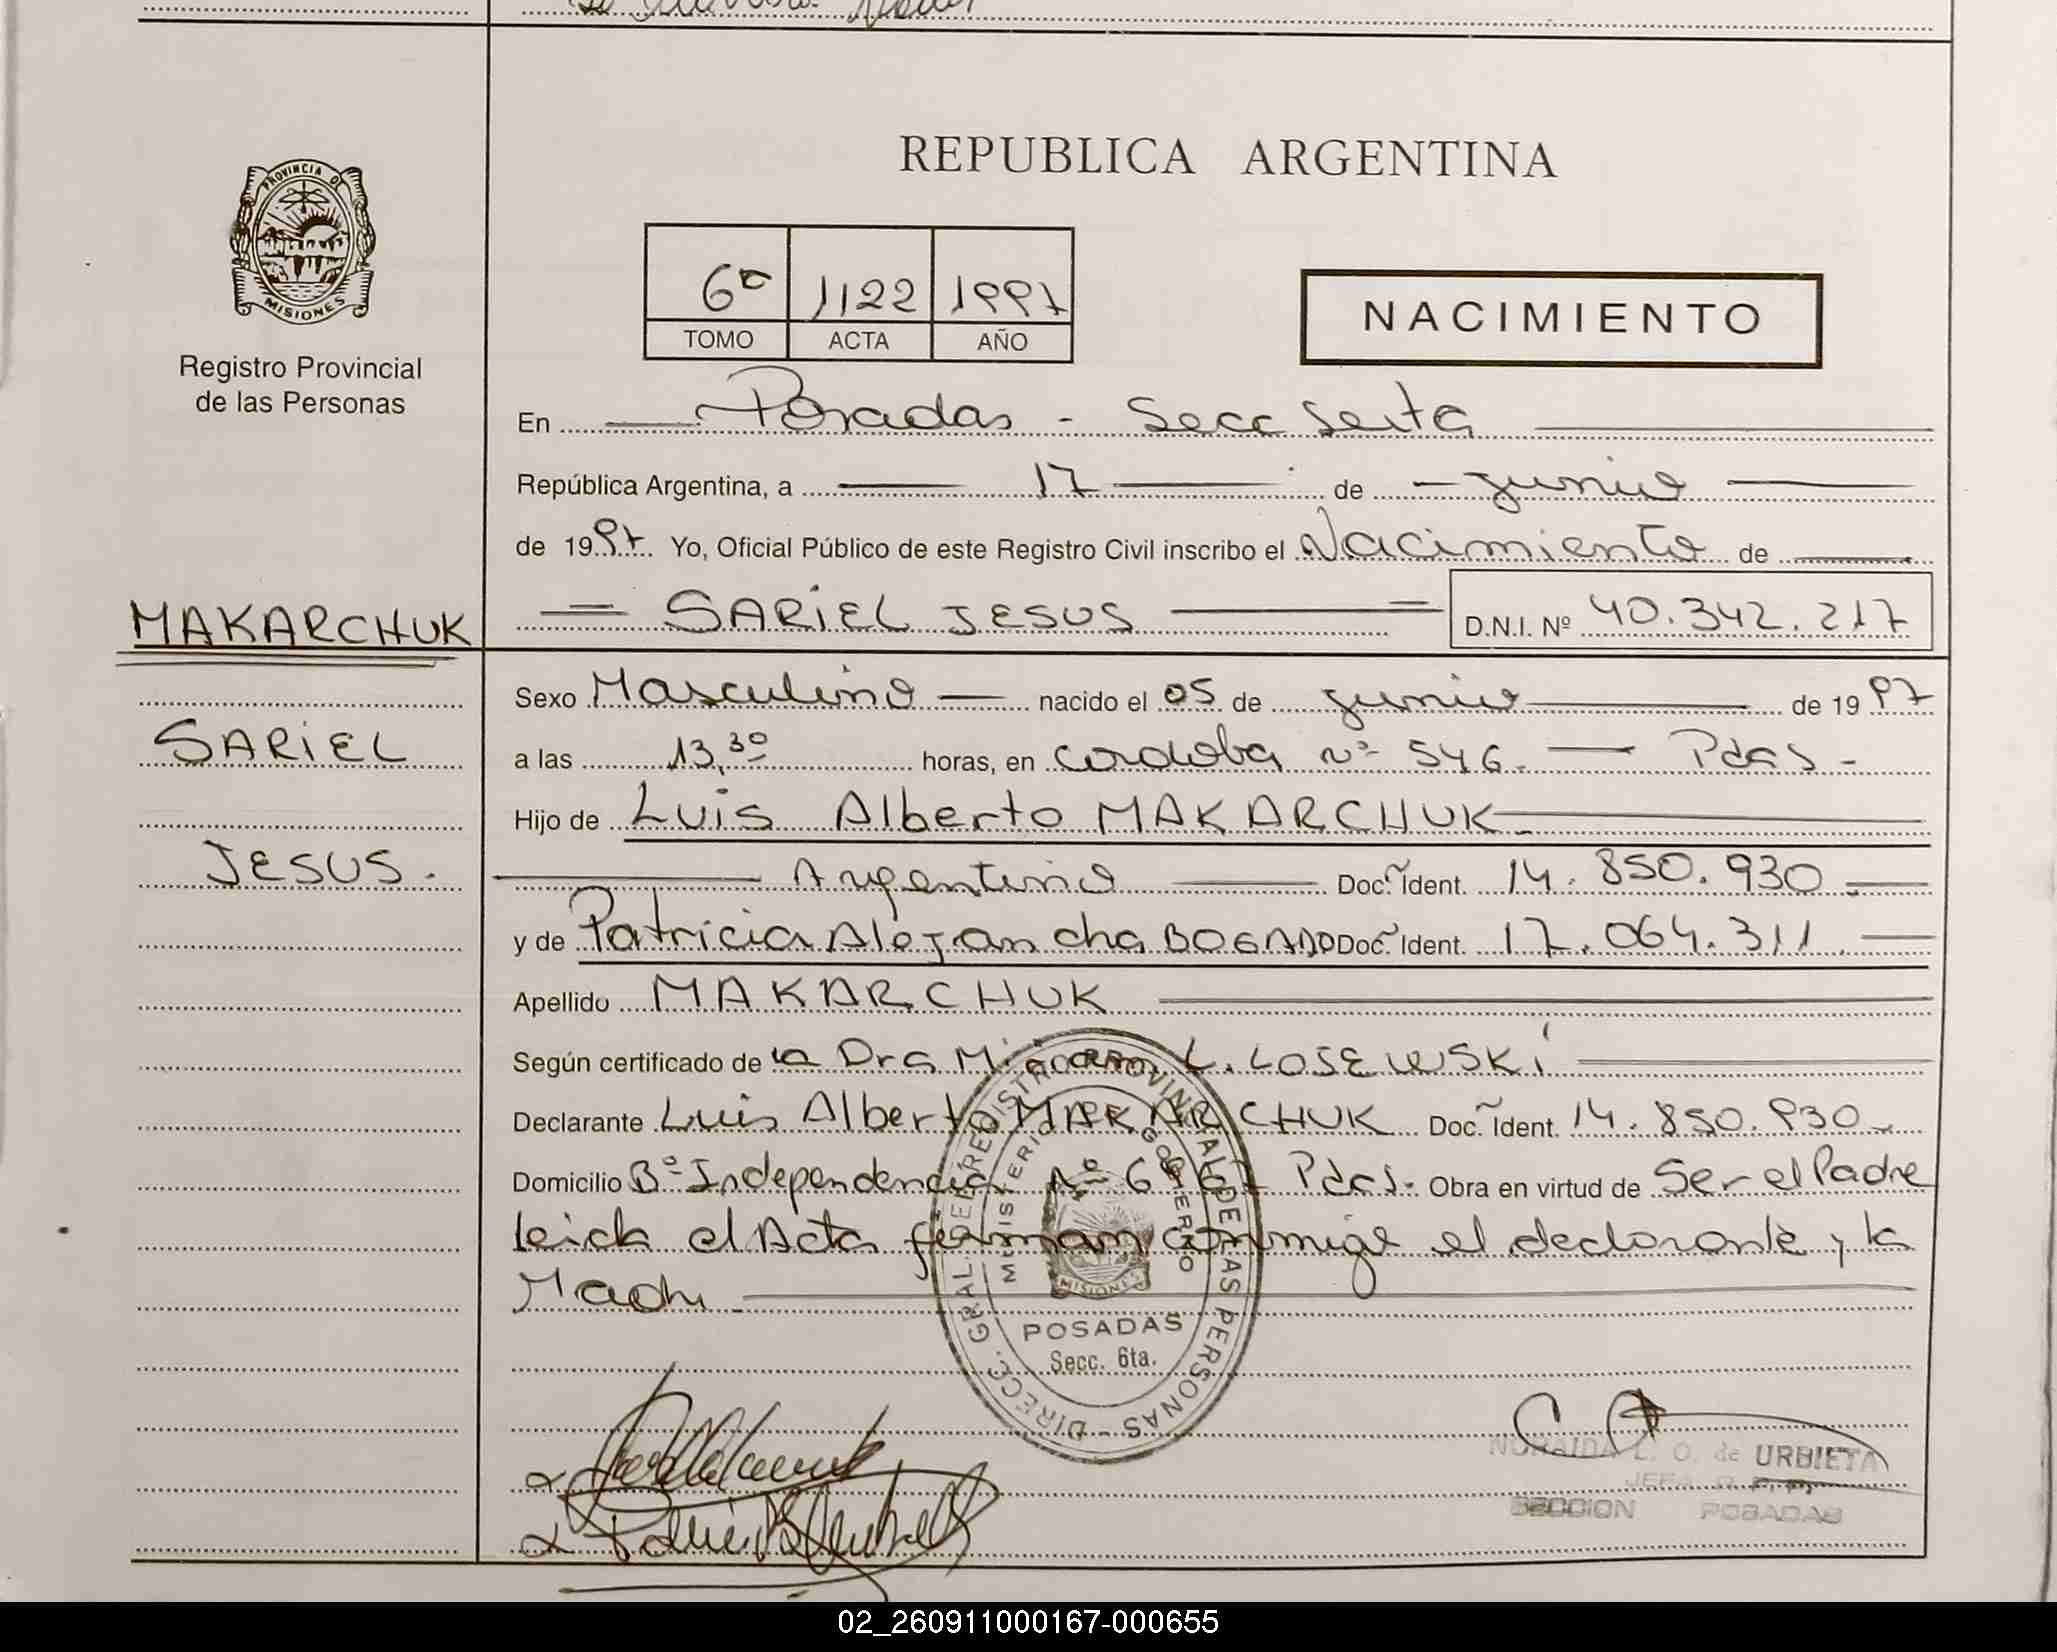 PROVINCIA DE
MISIONES
Registro Provincial
de las Personas
MAKARCHUK
SARIEL
JESUS.
REPUBLICA ARGENTINA
6º 1122 1997
TOMO ACTA AÑO
NACIMIENTO
En Posadas - Secc Sexta
República Argentina, a 17 de junio
de 1997. Yo, Oficial Público de este Registro Civil inscribo el Nacimiento de
SARIEL JESUS D.N.I. Nº 40.342.217
Sexo Masculino nacido el 05 de junio de 1997
a las 13,30 horas, en Cordoba nº 546. Pdas -
Hijo de Luis Alberto MAKARCHUK
Argentino Doc. Ident. 14.850.930
y de Patricia Alejandra BOGADO Doc. Ident. 17.064.311
Apellido MAKARCHUK
Según certificado de la Dra Miriam L. LOSEWSKI
Declarante Luis Alberto MAKARCHUK Doc. Ident. 14.850.930
Domicilio Bº Independencia Nº Pdas. Obra en virtud de Ser el Padre
leida el Acta firman conmigo el declarante y la
Madre
DIRECC. GRAL. DE REGISTRO PROVINCIAL DE LAS PERSONAS
MINISTERIO DE GOBIERNO
MISIONES
POSADAS
Secc. 6ta.
L. O. de URBIETA
JEFA R. P. P.
SECCION POSADAS
02_260911000167-000655